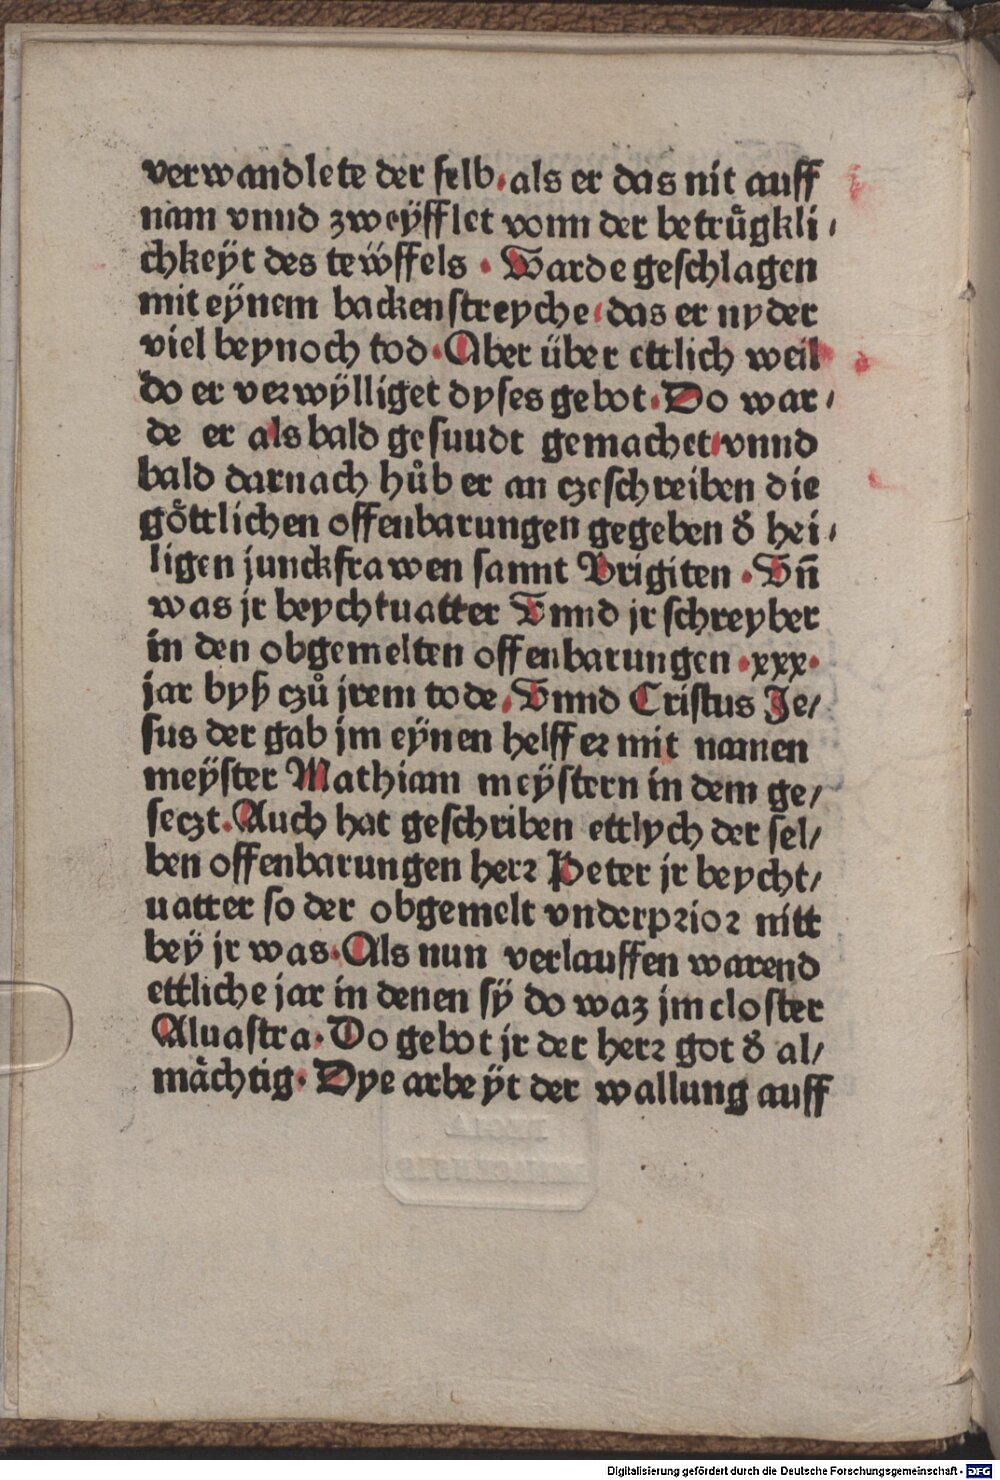 verwandlete der selb. als er das nit auff
nam vnnd zweÿfflet vonn der betrůgkli,
chkeÿt des teẅffels . Warde geschlagen
mit eÿnem backenstreyche, das er nyder
viel beynoch tod. Aber über ettlich weil
do er verwÿlliget dyses gebot. Do war,
de er als bald gesuudt gemachet, vnnd
bald darnach hůb er an czeschreiben die
gȯttlichen offenbarungen gegeben d̕ hei,
ligen junckfrawen sannt Brigiten . Vn̄
was jr beychtuatter Vnnd jr schreyber
in den obgemelten offenbarungen .xxx.
jar byß czů jrem tode, Vnnd Cristus Je/
sus der gab jm eÿnen helffer mit namen
meÿster Mathiam meÿstern in dem ge/
seczt. Auch hat geschriben ettlych der sel/
ben offenbarungen herr Peter jr beycht/
uatter so der obgemelt vnderprior nitt
beÿ jr was. Als nun verlauffen warend
ettliche jar in denen sÿ do waz jm closter
Aluastra. Do gebot jr der herr got d̕ al/
mȧchtig. Dye arbeÿt der wallung auff
Digitalisierung gefördert durch die Deutsche Forschungsgemeinschaft - DFG